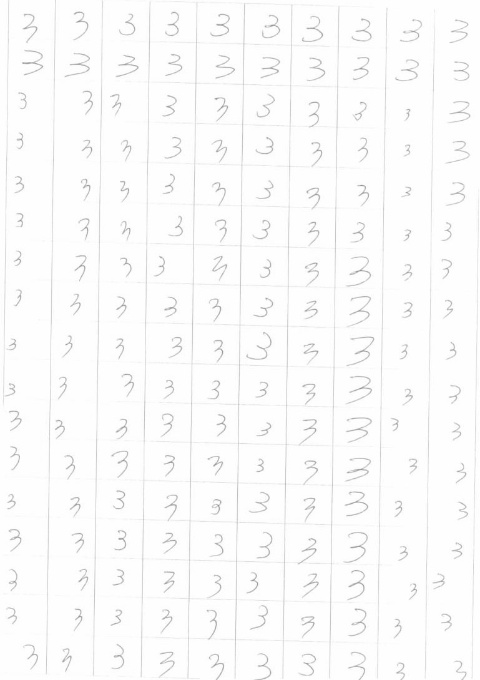 3 3 3 3 3 3 3 3 3 3
3 3 3 3 3 3 3 3 3 3
3 3 3 3 3 3 3 3 3 3 3
3 3 3 3 3 3 3 3 3 3
3 3 3 3 3 3 3 3 3 3
3 3 3 3 3 3 3 3 3 3
3 3 3 3 3 3 3 3 3 3
3 3 3 3 3 3 3 3 3 3
3 3 3 3 3 3 3 3 3 3
3 3 3 3 3 3 3 3 3 3
3 3 3 3 3 3 3 3 3 3
3 3 3 3 3 3 3 3 3 3
3 3 3 3 3 3 3 3 3 3
3 3 3 3 3 3 3 3 3 3
3 3 3 3 3 3 3 3 3 3
3 3 3 3 3 3 3 3 3 3
3 3 3 3 3 3 3 3 3 3